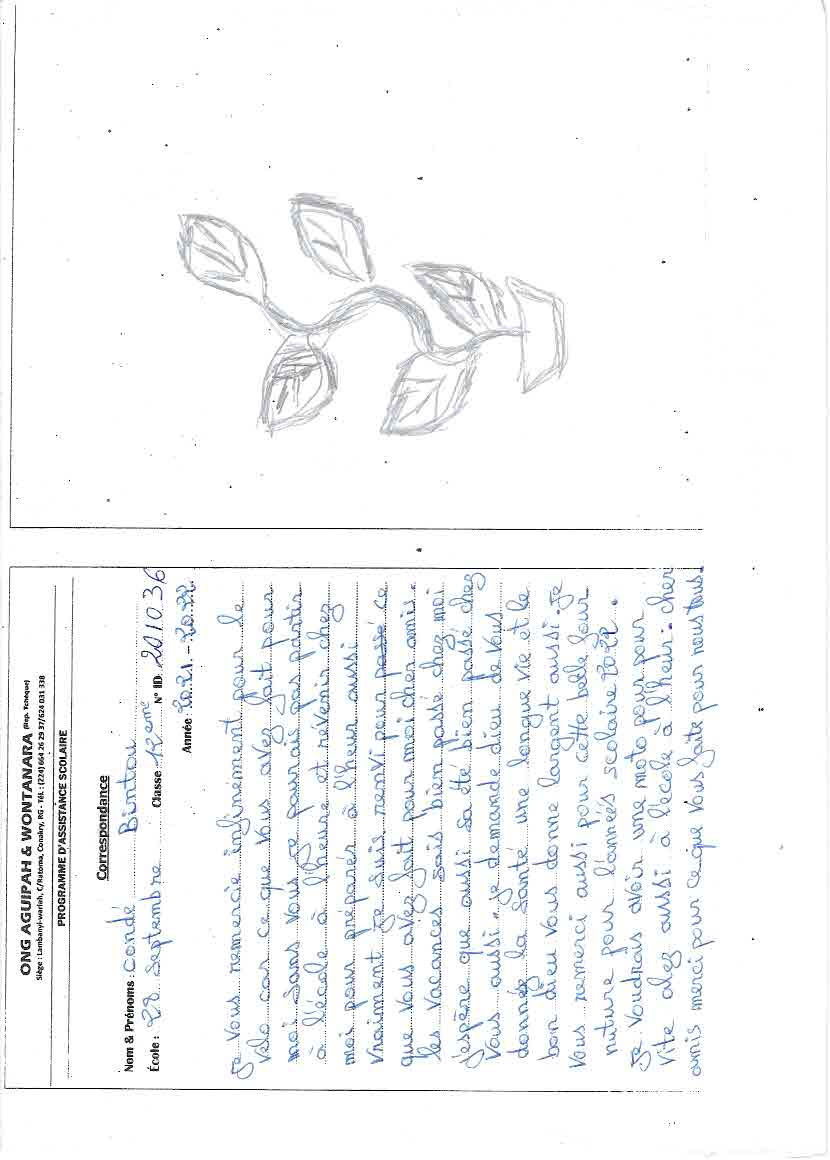 ONG AGUIPAH & WONTANARA (Rep. Tchèque)
Siège : Lambanyi-wariah, C/Ratoma, Conakry, RG - Tél. : (224) 664 26 29 37/624 031 338
PROGRAMME D'ASSISTANCE SCOLAIRE
Correspondance
Nom & Prénoms : condé Bintou
École : 28 Septembre Classe 12eme N° ID: 201036
Année : 2021 - 2022
Je Vous remercie infinement pour le
Velo car ce que Vous avez fait pour
moi Sans Vous je pourais pas partir
à l'école à l'heure et révenir chez
moi pour préparés à l'heur aussi
Vraiment Je Suis ramvi pour passé ce
que Vous avez fait pour moi cher amis.
les Vacances Sais bien passé chez moi
j'espère que aussi Sa été bien passé chez
Vous aussi. je demande dieu de Vous
donnée la Santé une longue Vie et le
bon dieu Vous donne largent aussi. Je
Vous remerci aussi pour cette belle four
nuture pour l'annéés scolaire 2022.
Je Voudrais avoir une moto pour pour
Vite alez aussi à l'école à l'heur. cher
amis merci pour ce que Vous faite pour nous tous.